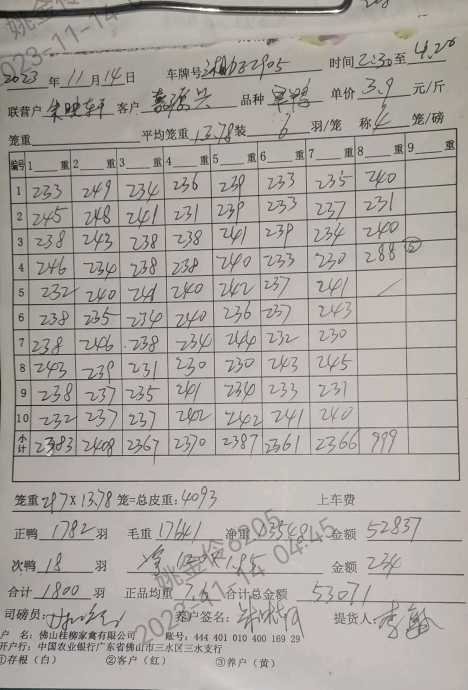 2023 年 11 月 14 日 车牌号 时间 2:30 至 4:20
联普户 客户 品种 单价 3.9 元/斤
笼重 平均笼重 13.78 装 6 羽/笼 称 4 笼/磅
编号 1 重 2 重 3 重 4 重 5 重 6 重 7 重 8 重 9 重
1 233 249 234 236 239 233 235 240
2 245 248 241 231 239 233 237 231
3 238 243 238 238 241 239 234 240
4 246 234 238 238 240 233 230 288 ⑤
5 232 240 241 240 242 237 241
6 238 235 234 240 236 237 243
7 238 246 238 234 244 232 230
8 243 239 231 230 230 243 245
9 238 237 235 241 234 233 231
10 232 237 237 242 242 241 240
小计 2383 2408 2367 2370 2387 2361 2366 999
笼重 297 X 13.78 笼=总皮重: 4093 上车费
正鸭 1782 羽 毛重 17641 净重 13548 金额 52837
次鸭 18 羽 金额 234
合计 1800 羽 正品均重 7.6 合计总金额 53071
司磅员: 养户签名: 提货人:
户 名: 佛山桂柳家禽有限公司 账号: 444 401 010 400 169 29
开户行: 中国农业银行广东省佛山市三水区三水支行
①存根（白） ②客户（红） ③养户（黄）
姚金伶6205
2023-11-14 04:45